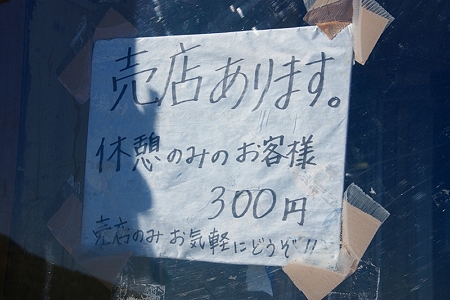 売店あります。
休憩のみのお客様
300円
売店のみお気軽にどうぞ!!